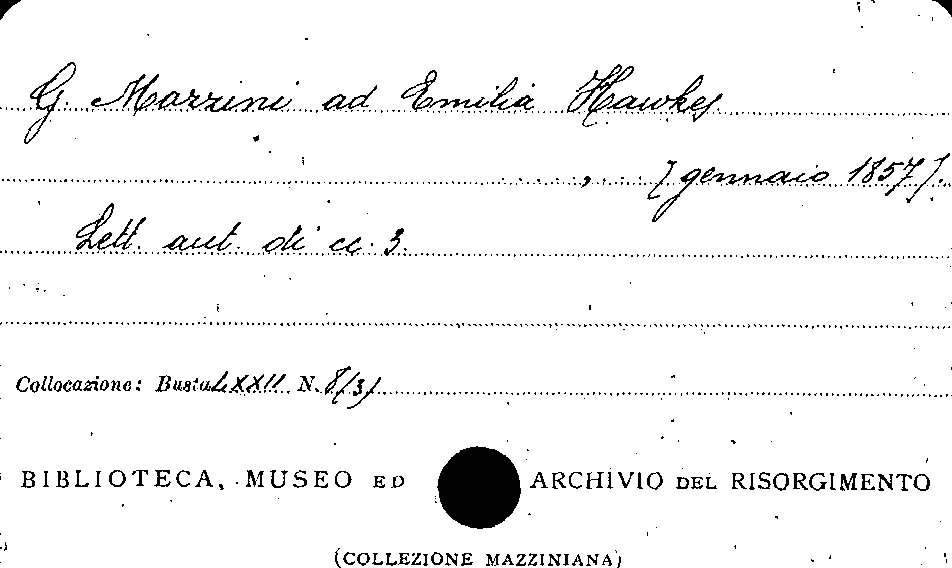 G. Mazzini ad Emilia Hawkes
, [gennaio 1857].
Lett. aut. di cc. 3.
Collocazione: Busta LXXII N. 8/3/
BIBLIOTECA, MUSEO ED ARCHIVIO DEL RISORGIMENTO
(COLLEZIONE MAZZINIANA)